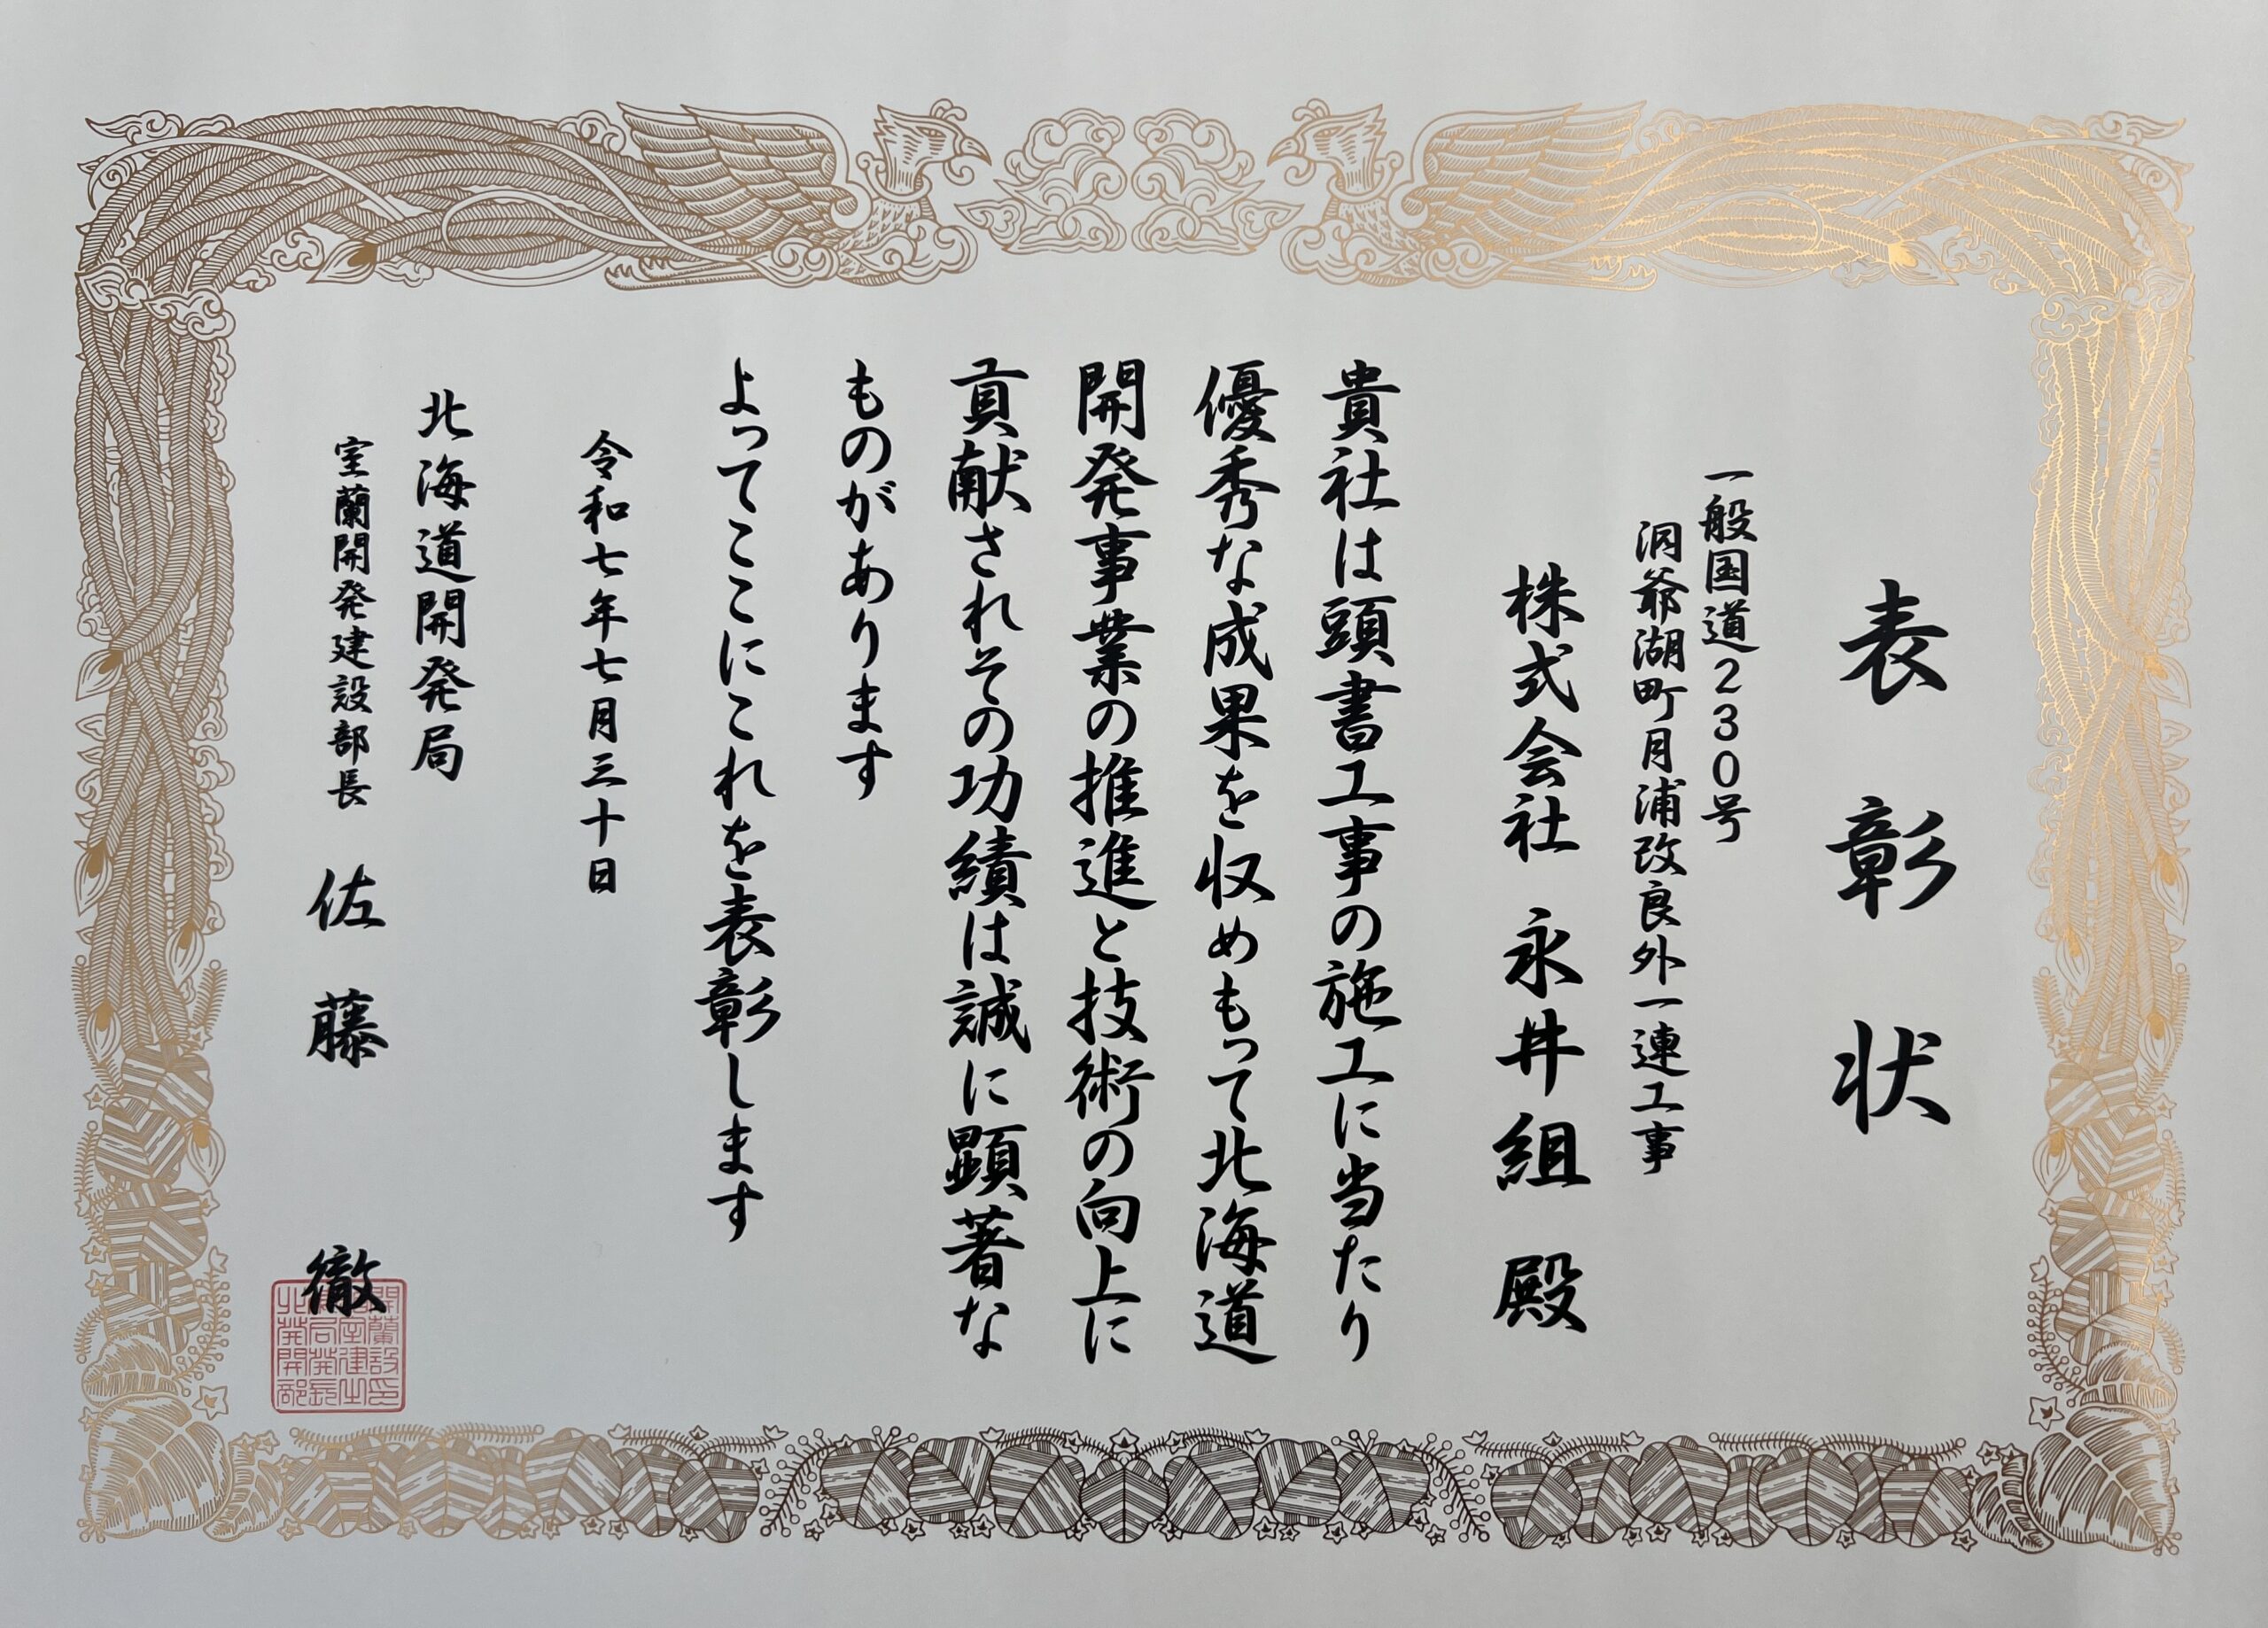 表彰状
一般国道230号
洞爺湖町月浦改良外一連工事
株式会社 永井組 殿
貴社は頭書工事の施工に当たり
優秀な成果を収めもって北海道
開発事業の推進と技術の向上に
貢献されその功績は誠に顕著な
ものがあります
よってここにこれを表彰します
令和七年七月三十日
北海道開発局
室蘭開発建設部長 佐藤 徹